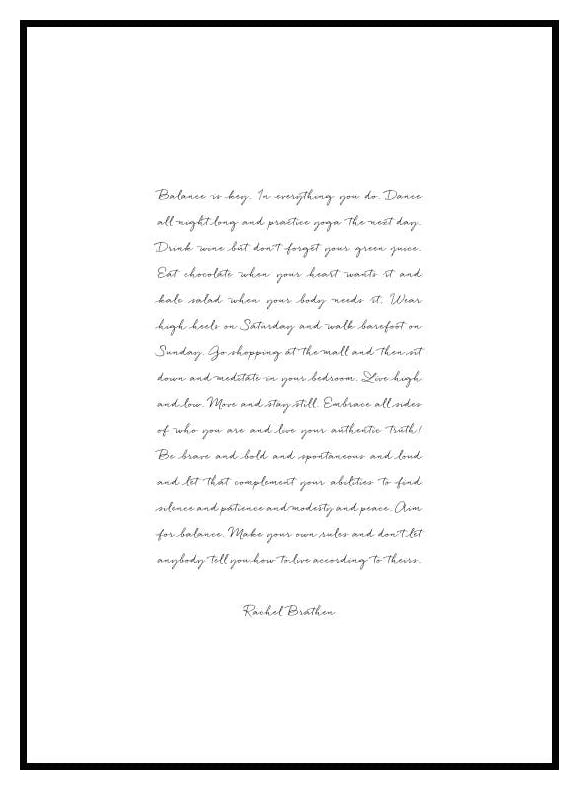 Balance is key. In everything you do. Dance
all night long and practice yoga the next day.
Drink wine but don't forget your green juice.
Eat chocolate when your heart wants it and
kale salad when your body needs it. Wear
high heels on Saturday and walk barefoot on
Sunday. Go shopping at the mall and then sit
down and meditate in your bedroom. Live high
and low. Move and stay still. Embrace all sides
of who you are and live your authentic truth!
Be brave and bold and spontaneous and loud
and let that complement your abilities to find
silence and patience and modesty and peace. Aim
for balance. Make your own rules and don't let
anybody tell you how to live according to theirs.
Rachel Brathen